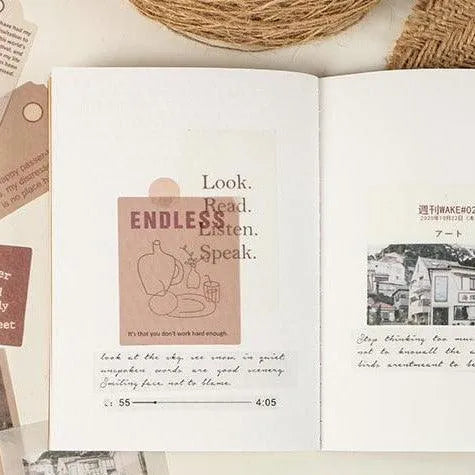 Look.
Read.
ENDLESS
Listen.
Speak.
It's that you don't work hard enough.
look at the sky see snow in quiet
unspoken words are good scenery
Smiling face not to blame.
55
4:05
週刊WAKE#02
2020年10月22日 (木
アート
Stop thinking too muc
not to knowall the a
birds arentmeant to be